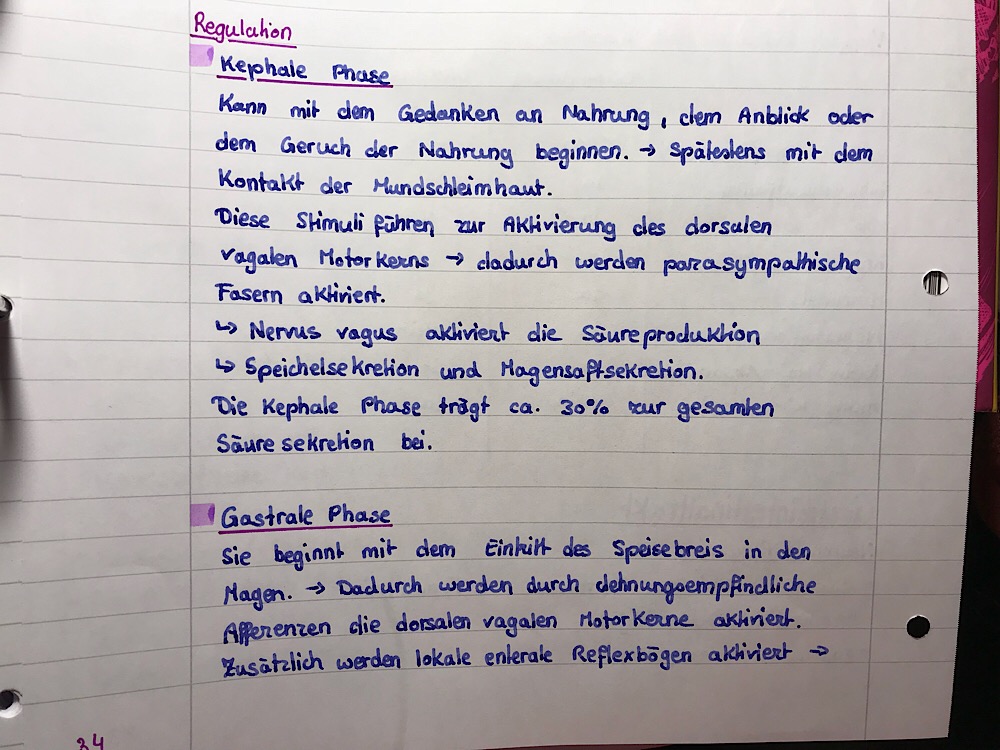 Regulation
Kephale Phase
Kann mit dem Gedanken an Nahrung, dem Anblick oder
dem Geruch der Nahrung beginnen. → Spätestens mit dem
Kontakt der Mundschleimhaut.
Diese Stimuli führen zur Aktivierung des dorsalen
vagalen Motorkerns → dadurch werden parasympathische
Fasern aktiviert.
↳ Nervus vagus aktiviert die Säureproduktion
↳ Speichelsekretion und Magensaftsekretion.
Die Kephale Phase trägt ca. 30% zur gesamten
Säuresekretion bei.
Gastrale Phase
Sie beginnt mit dem Eintritt des Speisebreis in den
Magen. → Dadurch werden durch dehnungsempfindliche
Afferenzen die dorsalen vagalen Motorkerne aktiviert.
Zusätzlich werden lokale enterale Reflexbögen aktiviert →
34